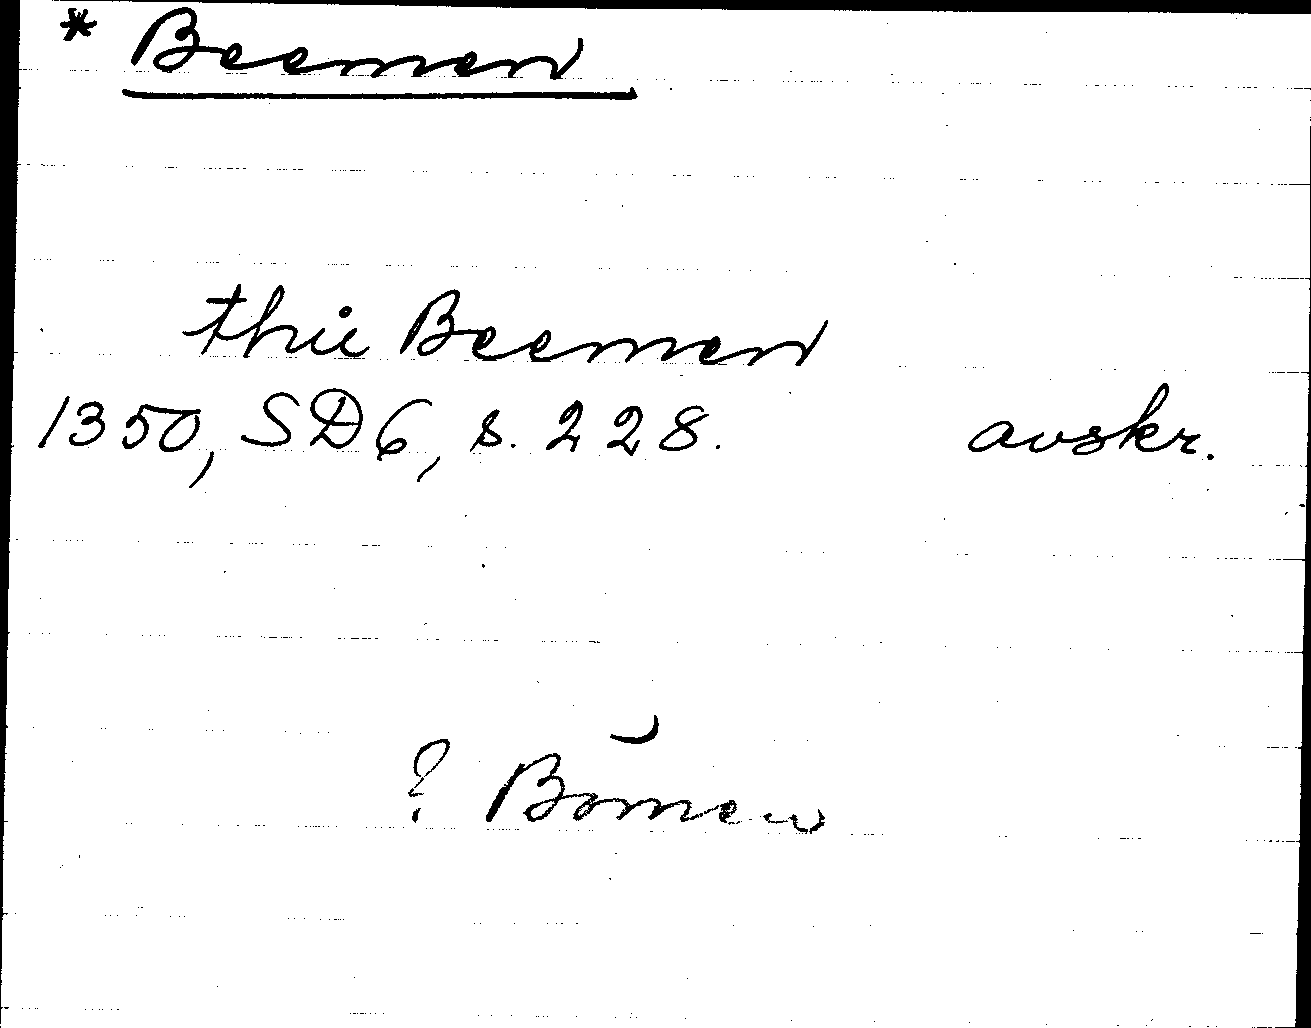 * Beemen
thii Beemen
1350, SD 6, s. 228. avskr.
? Bomen